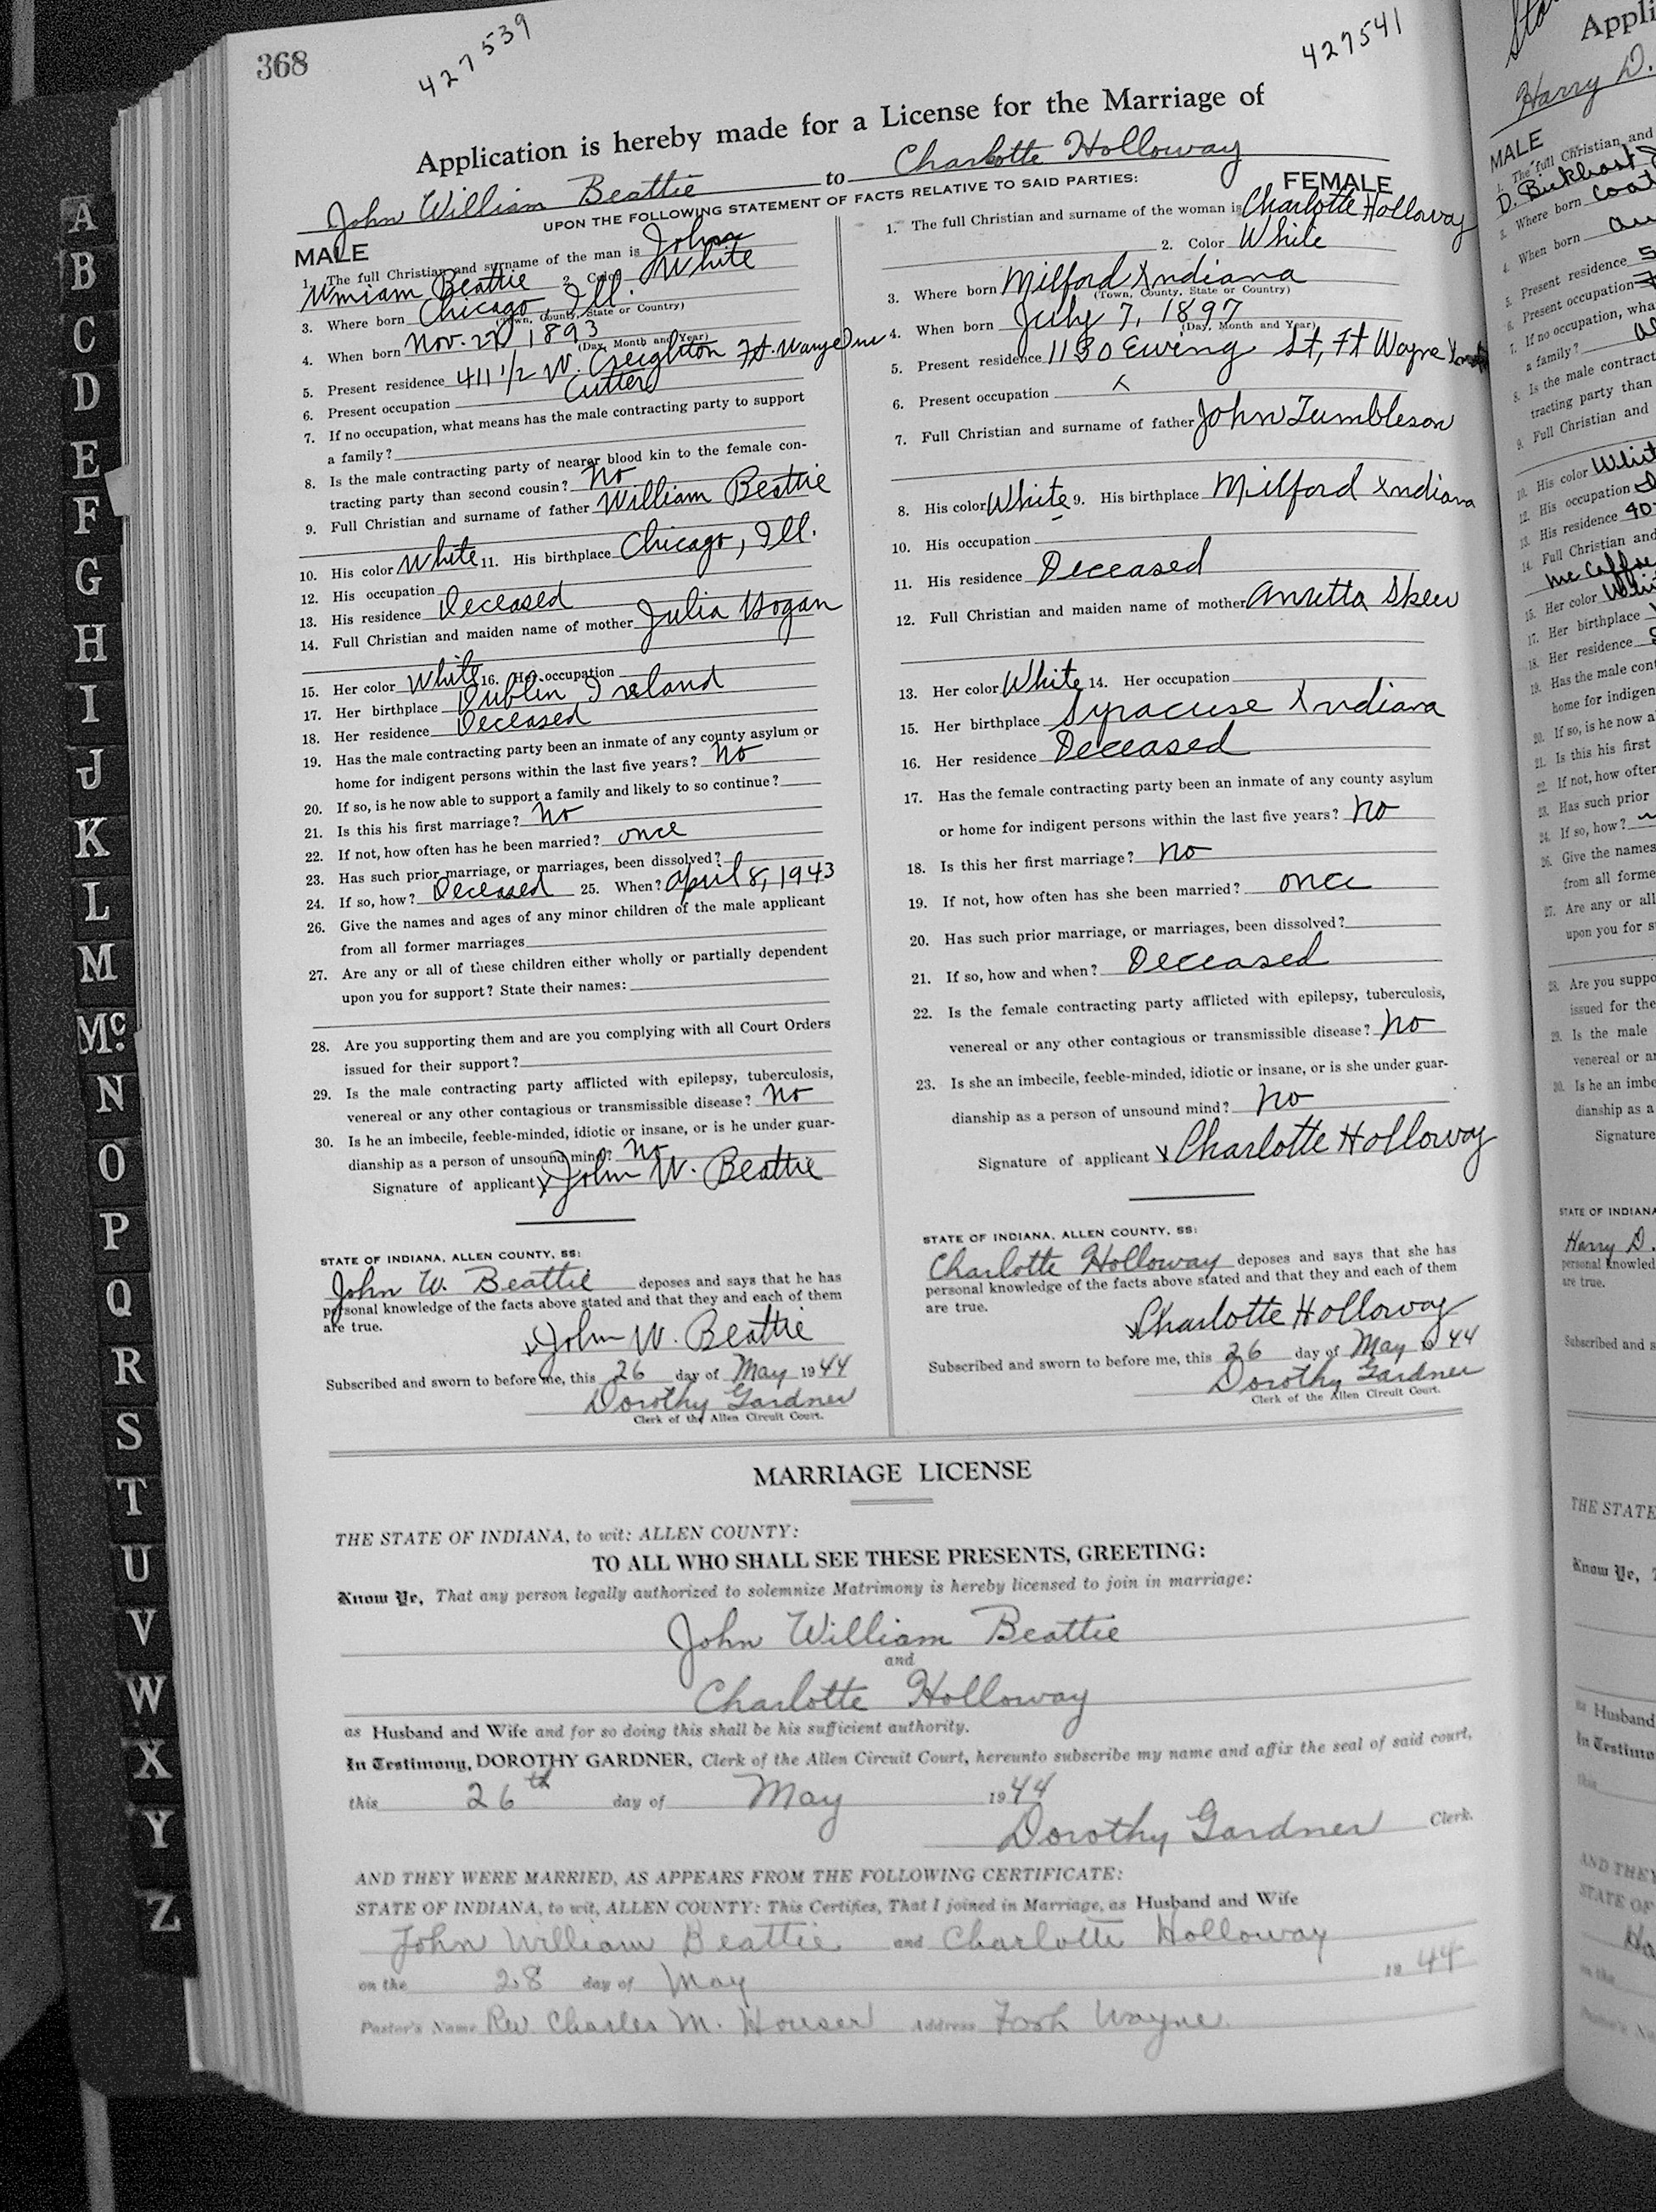 368
427539
427541
Application is hereby made for a License for the Marriage of
John William Beattie to Charlotte Holloway
UPON THE FOLLOWING STATEMENT OF FACTS RELATIVE TO SAID PARTIES:
MALE
1. The full Christian and surname of the man is John
William Beattie 2. Color White
3. Where born Chicago, Ill.
(Town, County, State or Country)
4. When born Nov. 1893
(Day, Month and Year)
5. Present residence 411 1/2 W. Creighton Ft. Wayne Ind
6. Present occupation Cutter
7. If no occupation, what means has the male contracting party to support
a family?
8. Is the male contracting party of nearer blood kin to the female con-
tracting party than second cousin? No
9. Full Christian and surname of father William Beattie
10. His color White 11. His birthplace Chicago, Ill.
12. His occupation
13. His residence Deceased
14. Full Christian and maiden name of mother Julia Hogan
15. Her color White 16. Her occupation
17. Her birthplace Dublin Ireland
18. Her residence Deceased
19. Has the male contracting party been an inmate of any county asylum or
home for indigent persons within the last five years? No
20. If so, is he now able to support a family and likely to so continue?
21. Is this his first marriage? No
22. If not, how often has he been married? once
23. Has such prior marriage, or marriages, been dissolved?
24. If so, how? Deceased 25. When? April 8, 1943
26. Give the names and ages of any minor children of the male applicant
from all former marriages
27. Are any or all of these children either wholly or partially dependent
upon you for support? State their names:
28. Are you supporting them and are you complying with all Court Orders
issued for their support?
29. Is the male contracting party afflicted with epilepsy, tuberculosis,
venereal or any other contagious or transmissible disease? No
30. Is he an imbecile, feeble-minded, idiotic or insane, or is he under guar-
dianship as a person of unsound mind? No
Signature of applicant x John W. Beattie
STATE OF INDIANA, ALLEN COUNTY, SS:
John W. Beattie deposes and says that he has
personal knowledge of the facts above stated and that they and each of them
are true.
x John W. Beattie
Subscribed and sworn to before me, this 26 day of May 1944
Dorothy Gardner
Clerk of the Allen Circuit Court.
FEMALE
1. The full Christian and surname of the woman is Charlotte Holloway
2. Color White
3. Where born Milford Indiana
(Town, County, State or Country)
4. When born July 7, 1897
(Day, Month and Year)
5. Present residence 1130 Ewing St, Ft Wayne Ind
6. Present occupation
7. Full Christian and surname of father John Tumbleson
8. His color White 9. His birthplace Milford Indiana
10. His occupation
11. His residence Deceased
12. Full Christian and maiden name of mother Anretta Skew
13. Her color White 14. Her occupation
15. Her birthplace Syracuse Indiana
16. Her residence Deceased
17. Has the female contracting party been an inmate of any county asylum
or home for indigent persons within the last five years? No
18. Is this her first marriage? No
19. If not, how often has she been married? once
20. Has such prior marriage, or marriages, been dissolved?
21. If so, how and when? Deceased
22. Is the female contracting party afflicted with epilepsy, tuberculosis,
venereal or any other contagious or transmissible disease? No
23. Is she an imbecile, feeble-minded, idiotic or insane, or is she under guar-
dianship as a person of unsound mind? No
Signature of applicant x Charlotte Holloway
STATE OF INDIANA, ALLEN COUNTY, SS:
Charlotte Holloway deposes and says that she has
personal knowledge of the facts above stated and that they and each of them
are true.
x Charlotte Holloway
Subscribed and sworn to before me, this 26 day of May 1944
Dorothy Gardner
Clerk of the Allen Circuit Court.
MARRIAGE LICENSE
THE STATE OF INDIANA, to wit: ALLEN COUNTY:
TO ALL WHO SHALL SEE THESE PRESENTS, GREETING:
Know Ye, That any person legally authorized to solemnize Matrimony is hereby licensed to join in marriage:
John William Beattie
and
Charlotte Holloway
as Husband and Wife and for so doing this shall be his sufficient authority.
In Testimony, DOROTHY GARDNER, Clerk of the Allen Circuit Court, hereunto subscribe my name and affix the seal of said court,
this 26th day of May 1944
Dorothy Gardner Clerk.
AND THEY WERE MARRIED, AS APPEARS FROM THE FOLLOWING CERTIFICATE:
STATE OF INDIANA, to wit, ALLEN COUNTY: This Certifies, That I joined in Marriage, as Husband and Wife
John William Beattie and Charlotte Holloway
on the 28 day of May 1944
Pastor's Name Rev. Charles M. Houser Address Fort Wayne
A
B
C
D
E
F
G
H
I
J
K
L
M
Mc
N
O
P
Q
R
S
T
U
V
W
X
Y
Z
Harry D.
MALE